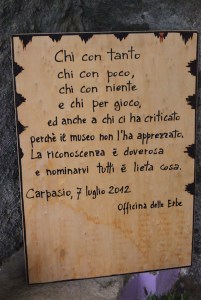 Chi con tanto
chi con poco,
chi con niente
e chi per gioco,
ed anche a chi ci ha criticato
perchè il museo non l'ha apprezzato.
La riconoscenza è doverosa
e nominarvi tutti è lieta cosa.
Carpasio, 7 luglio 2012
Officina delle Erbe